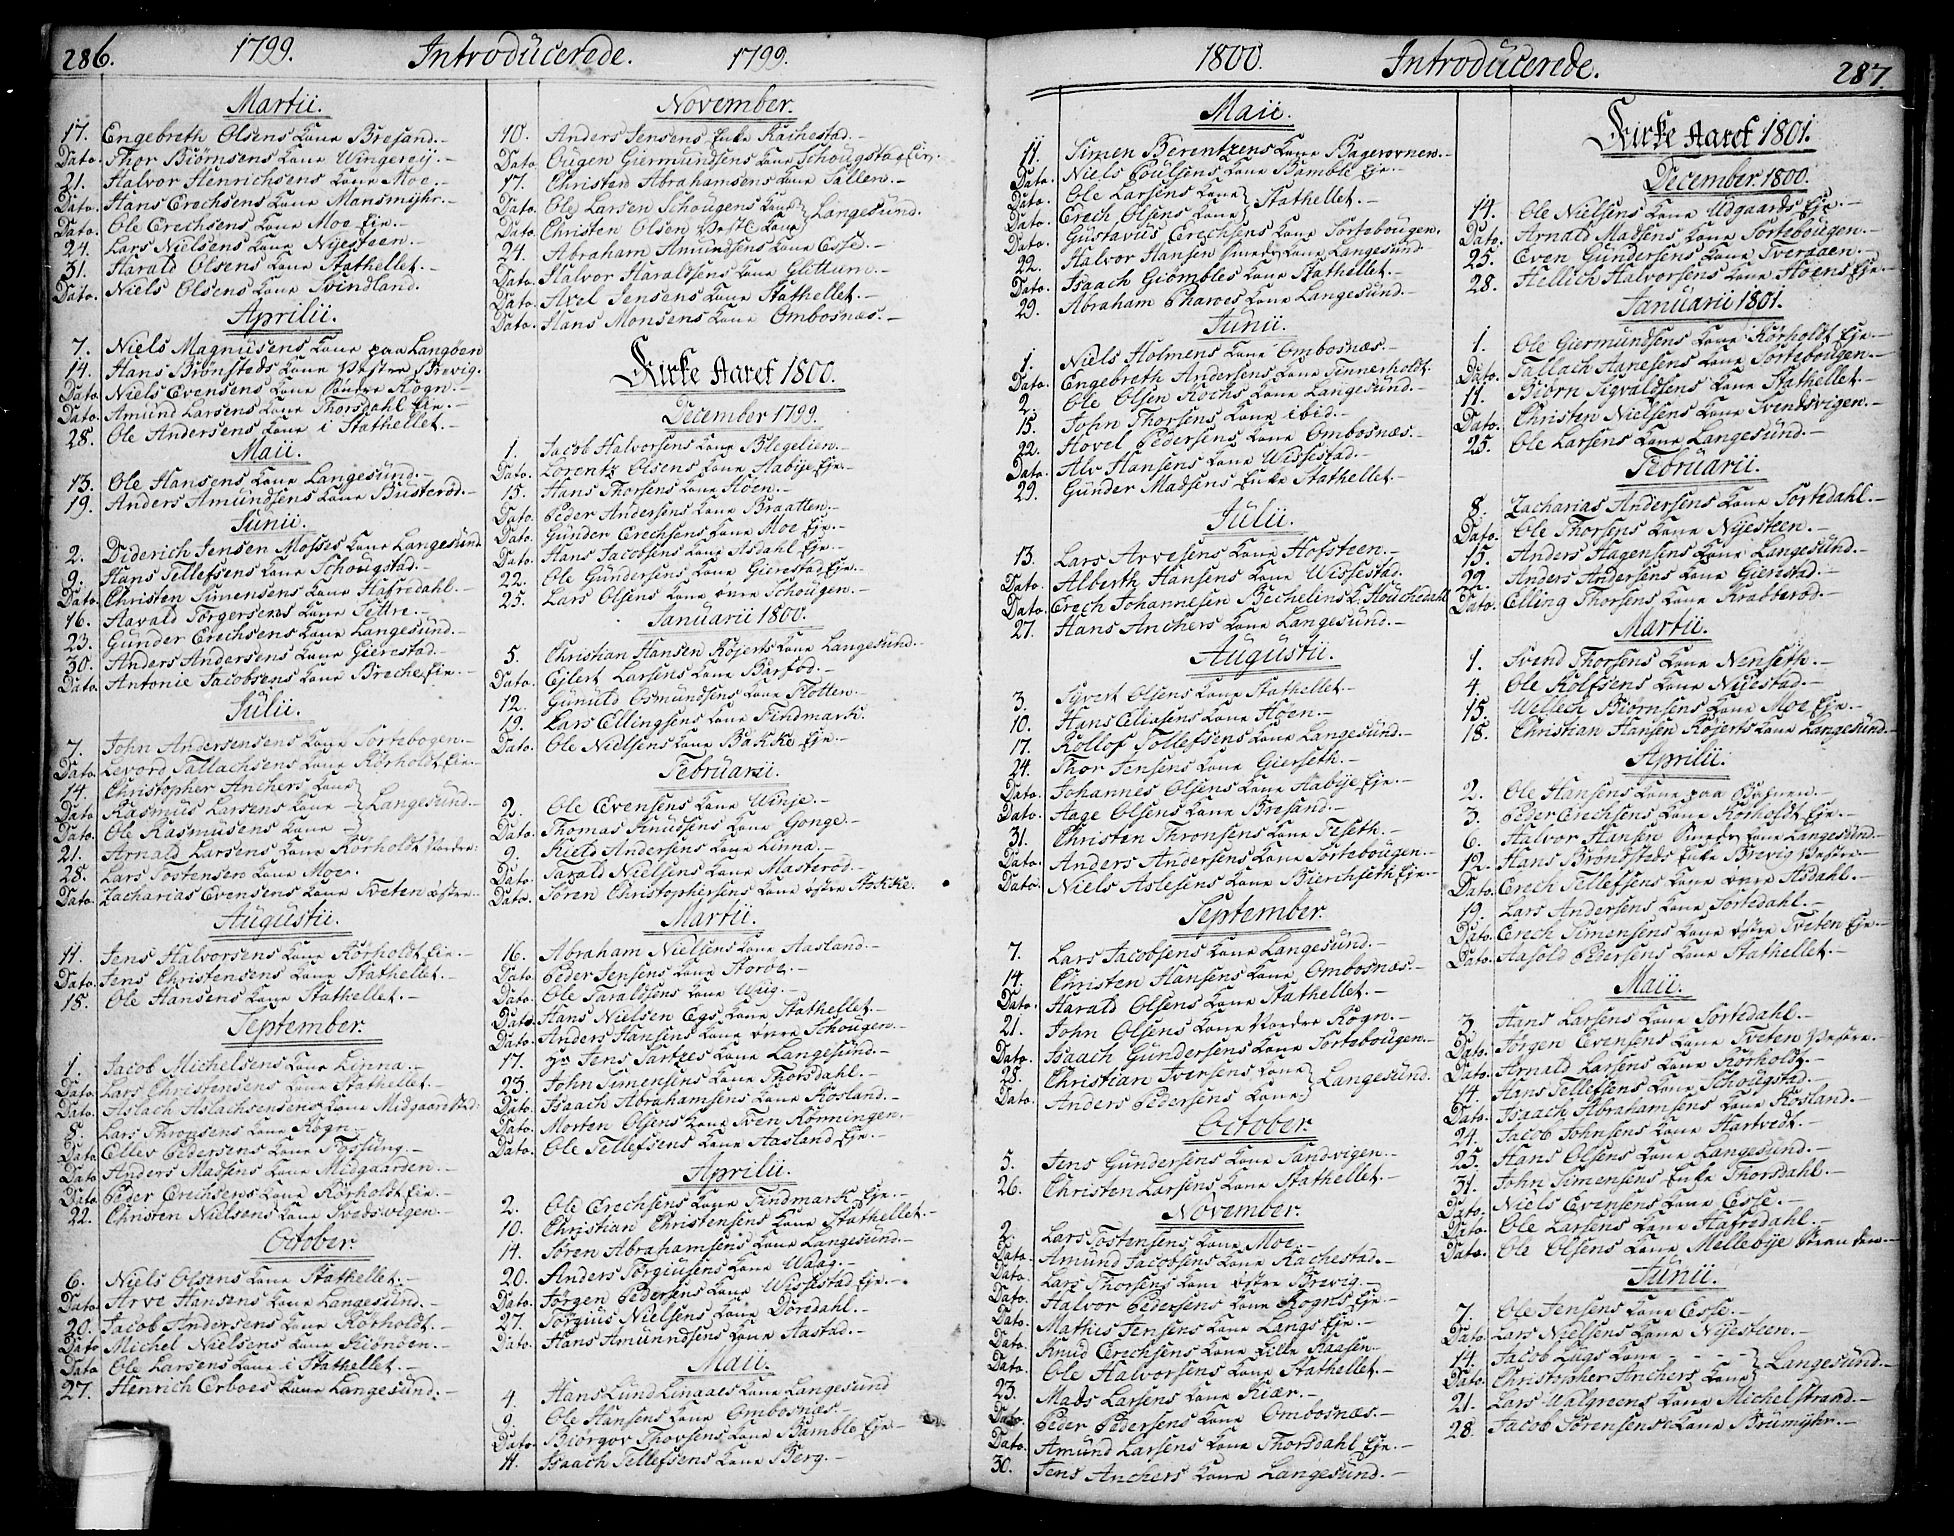 286.
1799. Introducerede. 1799.
Martii.
17. Engebreth Olsens Kone Bresand.-
Dato. Thor Biørnsens Kone Wingereij.-
21. Halvor Henrichsens Kone Moe.-
Dato. Hans Erechsens Kone Monsmyhr.-
Dato. Ole Erechsens Kone Moe Eje.-
24. Lars Nielsens Kone Nyesteen.-
31. Harald Olsens Kone Stathellet.-
Dato. Niels Olsens Kone Svindland.
Aprilii.
7. Niels Magnusens Kone paa Langøen
14. Hans Brønsteds Kone Vestre Brevig.
Dato Niels Evensens Kone Søndre Rogn.-
Dato. Amund Larsens Kone Thorsdahl Eje.-
28. Ole Andersens Kone i Stathellet.-
Maii.
13. Ole Hansens Kone Langesund.-
19. Anders Amundsens Kone Busterød.-
Junii.
2. Dederich Jensen Mosses Kone Langesund
9. Hans Tellefsens Kone Schougstad.-
Dato. Christen Simensens Kone Hafredahl.-
16. Harald Torgersens Kone Tettre.-
23. Gunder Erechsens Kone Langesund.-
30. Anders Andersens Kone Gierestad.-
Dato. Antonie Jacobsens Kone Breche Eie.-
Julii.
7. John Andersensens Kone Sortebogen.-
Dato Levord Tallachsens Kone Kørholdt Eie.-
14. Christopher Anchers Kone
Dato Rasmus Larsens Kone - Langesund.-
Dato. Ole Rasmusens Kone -
21. Arnald Larsens Kone Kørholdt Nordre.
28. Lars Tostensen Kone Moe.
Dato. Zacharias Evensens Kone Tveten østre.-
Augustii.
11. Jens Halvorsens Kone Kørholdt Eie.-
Dato. Jens Christensens Kone Stathellet.-
18. Ole Hansens Kone Stathellet.-
September.
1. Jacob Michelsens Kone Linna.-
Dato. Lars Christensens Kone Stathellet.-
Dato. Aslach Aslachsensens Kone Midgaarsstad.
8. Lars Thronsens Kone Rogn.-
Dato. Ellev Pedersens Kone Fossung.-
Dato Anders Madsens Kone Midgaarden.-
Dato Peder Erechsens Kone Kørholdt Eie.-
22. Christen Nielsens Kone Svedsvigen.-
October.
6. Niels Olsens Kone Stathellet.-
Dato. Arve Hansens Kone Langesund.-
20. Jacob Andersens Kone Kørholdt.-
Dato Michel Nielsens Kone Kiønsen.-
Dato Ole Larsens Kone i Stathellet.-
27. Henrich Erboes Kone Langesund.-
November.
10. Anders Jensens Enke Rachestad.-
Dato. Ougen Giermundsens Kone Schougstad Eie.
17. Christen Abrahamsens Kone Sallen.-
Dato. Ole Larsen Schougens Kone Langesund.
Dato. Christen Olsen Vestl. Kone
24. Abraham Amundsens Kone Esse.-
Dato. Halvor Haraldsens Kone Glittum.-
Dato. Axel Jensens Kone Stathellet.-
Dato. Hans Monsens Kone Ombosnæs.-
Kirke Aaret 1800.
December 1799.
1. Jacob Halvorsens Kone Blegelien.-
Dato. Lorentz Olsens Kone Habije Eje.-
15. Hans Thorsens Kone Hoen.-
Dato. Peder Andersens Kone Braatten.-
Dato. Gunder Erechsens Kone Moe Eje.-
Dato. Hans Jacobsens Kone Asdahl Eje.-
22. Ole Gundersens Kone Gierestad Eje.-
25. Lars Olsens Kone øvre Schougen.-
Januarii 1800.
5. Christian Hansen Röjerts Kone Langesund.-
Dato. Ejlert Larsens Kone Barfod.-
12. Gunuld Osmundsens Kone Flotten.-
19. Lars Ellingsens Kone Findmark.
Dato. Ole Nielsens Kone Bakke Eje.-
Februarii.
2. Ole Evensens Kone Winje.-
Dato. Thomas Knudsens Kone Gonge.-
9. Kield Andersens Kone Linna.-
Dato. Sarald Nielsens Kone Masterød.-
Dato. Søren Christophersens Kone østre Stokke.
Martii.
16. Abraham Nielsens Kone Aasland.-
Dato Peder Jensens Kone Storøe.-
Dato. Ole Taraldsens Kone Wiig.-
Dato. Hans Nielsen Egs Kone Stathellet.-
Dato. Anders Hansens Kone øvre Schougen.-
17. Hr Jens Sartzes Kone Langesund.-
23. John Simensens Kone Thorsdahl.-
Dato. Isaach Abrahamsens Kone Rosland.-
Dato. Morten Olsens Kone Sven Rønningen.
Dato. Ole Tellefsens Kone Aasland Eje.-
Aprilii.
2. Ole Erechsens Kone Findmark Eje.-
10. Christian Christensens Kone Stathellet.-
14. Søren Abrahamsens Kone Langesund.-
20. Anders Torgiusens Kone Waag.-
Dato. Jørgen Pedersens Kone Wissestad Eje.-
27. Torgius Nielsens Kone Dørdahl.-
Dato Hans Amunndsens Kone Aastad.-
Maii.
4. Hans Lund Linaaes Kone Langesund
9. Ole Hansens Kone Ombosnæs.-
Dato. Biørgov Thovsens Kone Bamble Eje.-
11. Isaach Tellefsens Kone Berg.-
1800. Introducerede. 287.
Maii.
11. Simen Berentzens Kone Bagerovnen.-
Dato. Niels Poulsens Kone Bamble Eje.-
Dato. Ole Larsens Kone Stathellet.-
Dato. Erech Olsens Kone
Dato. Gustavus Erechsens Kone Sortebougen.
22. Halvor Hansen Smeds Kone Langesund
Dato. Isaach Giømbles Kone Stathellet.-
29. Abraham Pharoes Kone Langesund.-
Junii.
1. Niels Holmens Kone Ombosnæs.-
Dato. Engebreth Andersens Kone Tinnerholdt.
2. Ole Olsen Kochs Kone Langesund.-
15. John Thorsens Kone ibid.-
22. Hovel Pedersens Kone Ombosnæs.-
Dato. Alv Hansens Kone Wissestad.-
29. Gunder Madsens Enke Stathellet.-
Julii.
13. Lars Arvesens Kone Hofsteen.-
Dato. Alberth Hansens Kone Wissestad.
Dato. Erech Johannesen Bechelins K. Houchedahl
27. Hans Anchers Kone Langesund.-
Augustii.
3. Syvert Olsens Kone Stathellet.-
10. Hans Eliasens Kone Hoen.-
17. Rollof Tollefsens Kone Langesund.-
24. Thor Jensens Kone Gierseth.-
Dato. Johannes Olsens Kone Habije Eje.-
Dato. Aage Olsens Kone Bresand.-
31. Christen Thronsens Kone Feseth.-
Dato. Anders Andersens Kone Sortebougen.-
Dato. Niels Aslesens Kone Bierchseth Eje.-
September.
7. Lars Jacobsens Kone Langesund.-
14. Christen Hansens Kone Ombosnæs.-
Dato. Harald Olsens Kone Stathellet.-
21. John Olsens Kone Nordre Rogn.-
Dato. Isaach Gundersens Kone Sortebougen.-
28. Christian Iversens Kone Langesund.
Dato. Anders Pedersens Kone
October.
5. Jens Gundersens Kone Sandvigen.-
26. Christen Larsens Kone Stathellet.-
November.
2. Lars Tostensens Kone Moe.-
Dato. Amund Jacobsens Kone Rachestad.-
Dato. Lars Thorsens Kone østre Brevig.-
Dato. Halvor Pedersens Kone Rogns Eje.-
Dato. Mathis Jensens Kone Langs Eje.-
Dato. Knud Erechsens Kone Lille Haasen.-
Dato. Ole Halvorsens Kone Stathellet.-
23. Mads Larsens Kone Kiær.-
Dato. Peder Pedersens Kone Ombosnæs.-
Dato. Amund Larsens Kone Thorsdahl Eje.-
30. Jens Anchers Kone Langesund.-
Kirke Aaret 1801.
December 1800.
14. Ole Nielsens Kone Udgaards Eje.-
Dato. Arnald Madsens Kone Sortebougen.-
25. Even Gundersens Kone Tveraaen.-
28. Hellich Halvorsens Kone Hoens Eje.-
Januarii 1801.
1. Ole Giermundsens Kone Kørholdt Eje.-
Dato. Tallach Hanesens Kone Sortebougen.-
11. Biørn Sigvaldsens Kone Stathellet.-
Dato. Christen Nielsens Kone Svendsvigen.-
25. Ole Larsens Kone Langesund.-
Februarii.
8. Zacharias Andersens Kone Sortedahl.-
Dato. Ole Thorsens Kone Nyesteen.-
15. Anders Hagensens Kone Langesund.-
22. Anders Andersens Kone Gierestad.-
Dato. Elling Thorsens Kone Krabberød.-
Martii.
1. Svend Thorsens Kone Nenseth.-
4. Ole Rolfsens Kone Nuestad.-
15. Wellech Biørnsens Kone Moe Eje.-
18. Christian Hansen Röjerts Kone Langesund.-
Aprilii.
2. Ole Hansens Kone paa
3. Peder Erechsens Kone Kørholdt Eje.-
6. Halvor Hansen Smeds Kone Langesund.-
12. Hans Brøndsteds Enke Brevig Vestre.-
Dato. Erech Tellefsens Kone øvre Asdahl.-
19. Lars Andersens Kone Sortedahl.-
Dato. Erech Simensens Kone østre Tveten Eje.-
Dato. Aasold Pedersens Kone Stathellet.-
Maii.
3. Hans Larsens Kone Sortedahl.-
Dato. Jørgen Evensens Kone Tveten Vestre.-
Dato. Arnald Larsens Kone Kørholdt.-
14. Hans Tellefsens Kone Schougstad.-
Dato. Isaach Abrahamsens Kone Rosland.-
24. Jacob Johnsens Kone Hartvedt.-
25. Hans Olsens Kone Langesund.-
31. John Simensens Enke Thorsdahl.-
Dato. Niels Evensens Kone Esse.-
Dato. Ole Larsens Kone Hafredahl.-
Dato. Ole Olsens Kone Mellebye Stranden.-
Junii.
7. Ole Jensens Kone Esse.-
Dato. Lars Nielsens Kone Nyesteen.-
14. Jacob Lugs Kone - - - Langesund.-
Dato. Christopher Anchers Kone
21. Lars Walgreens Kone Michelstrand.-
28. Jacob Sørensens Kone Brumyhr.-